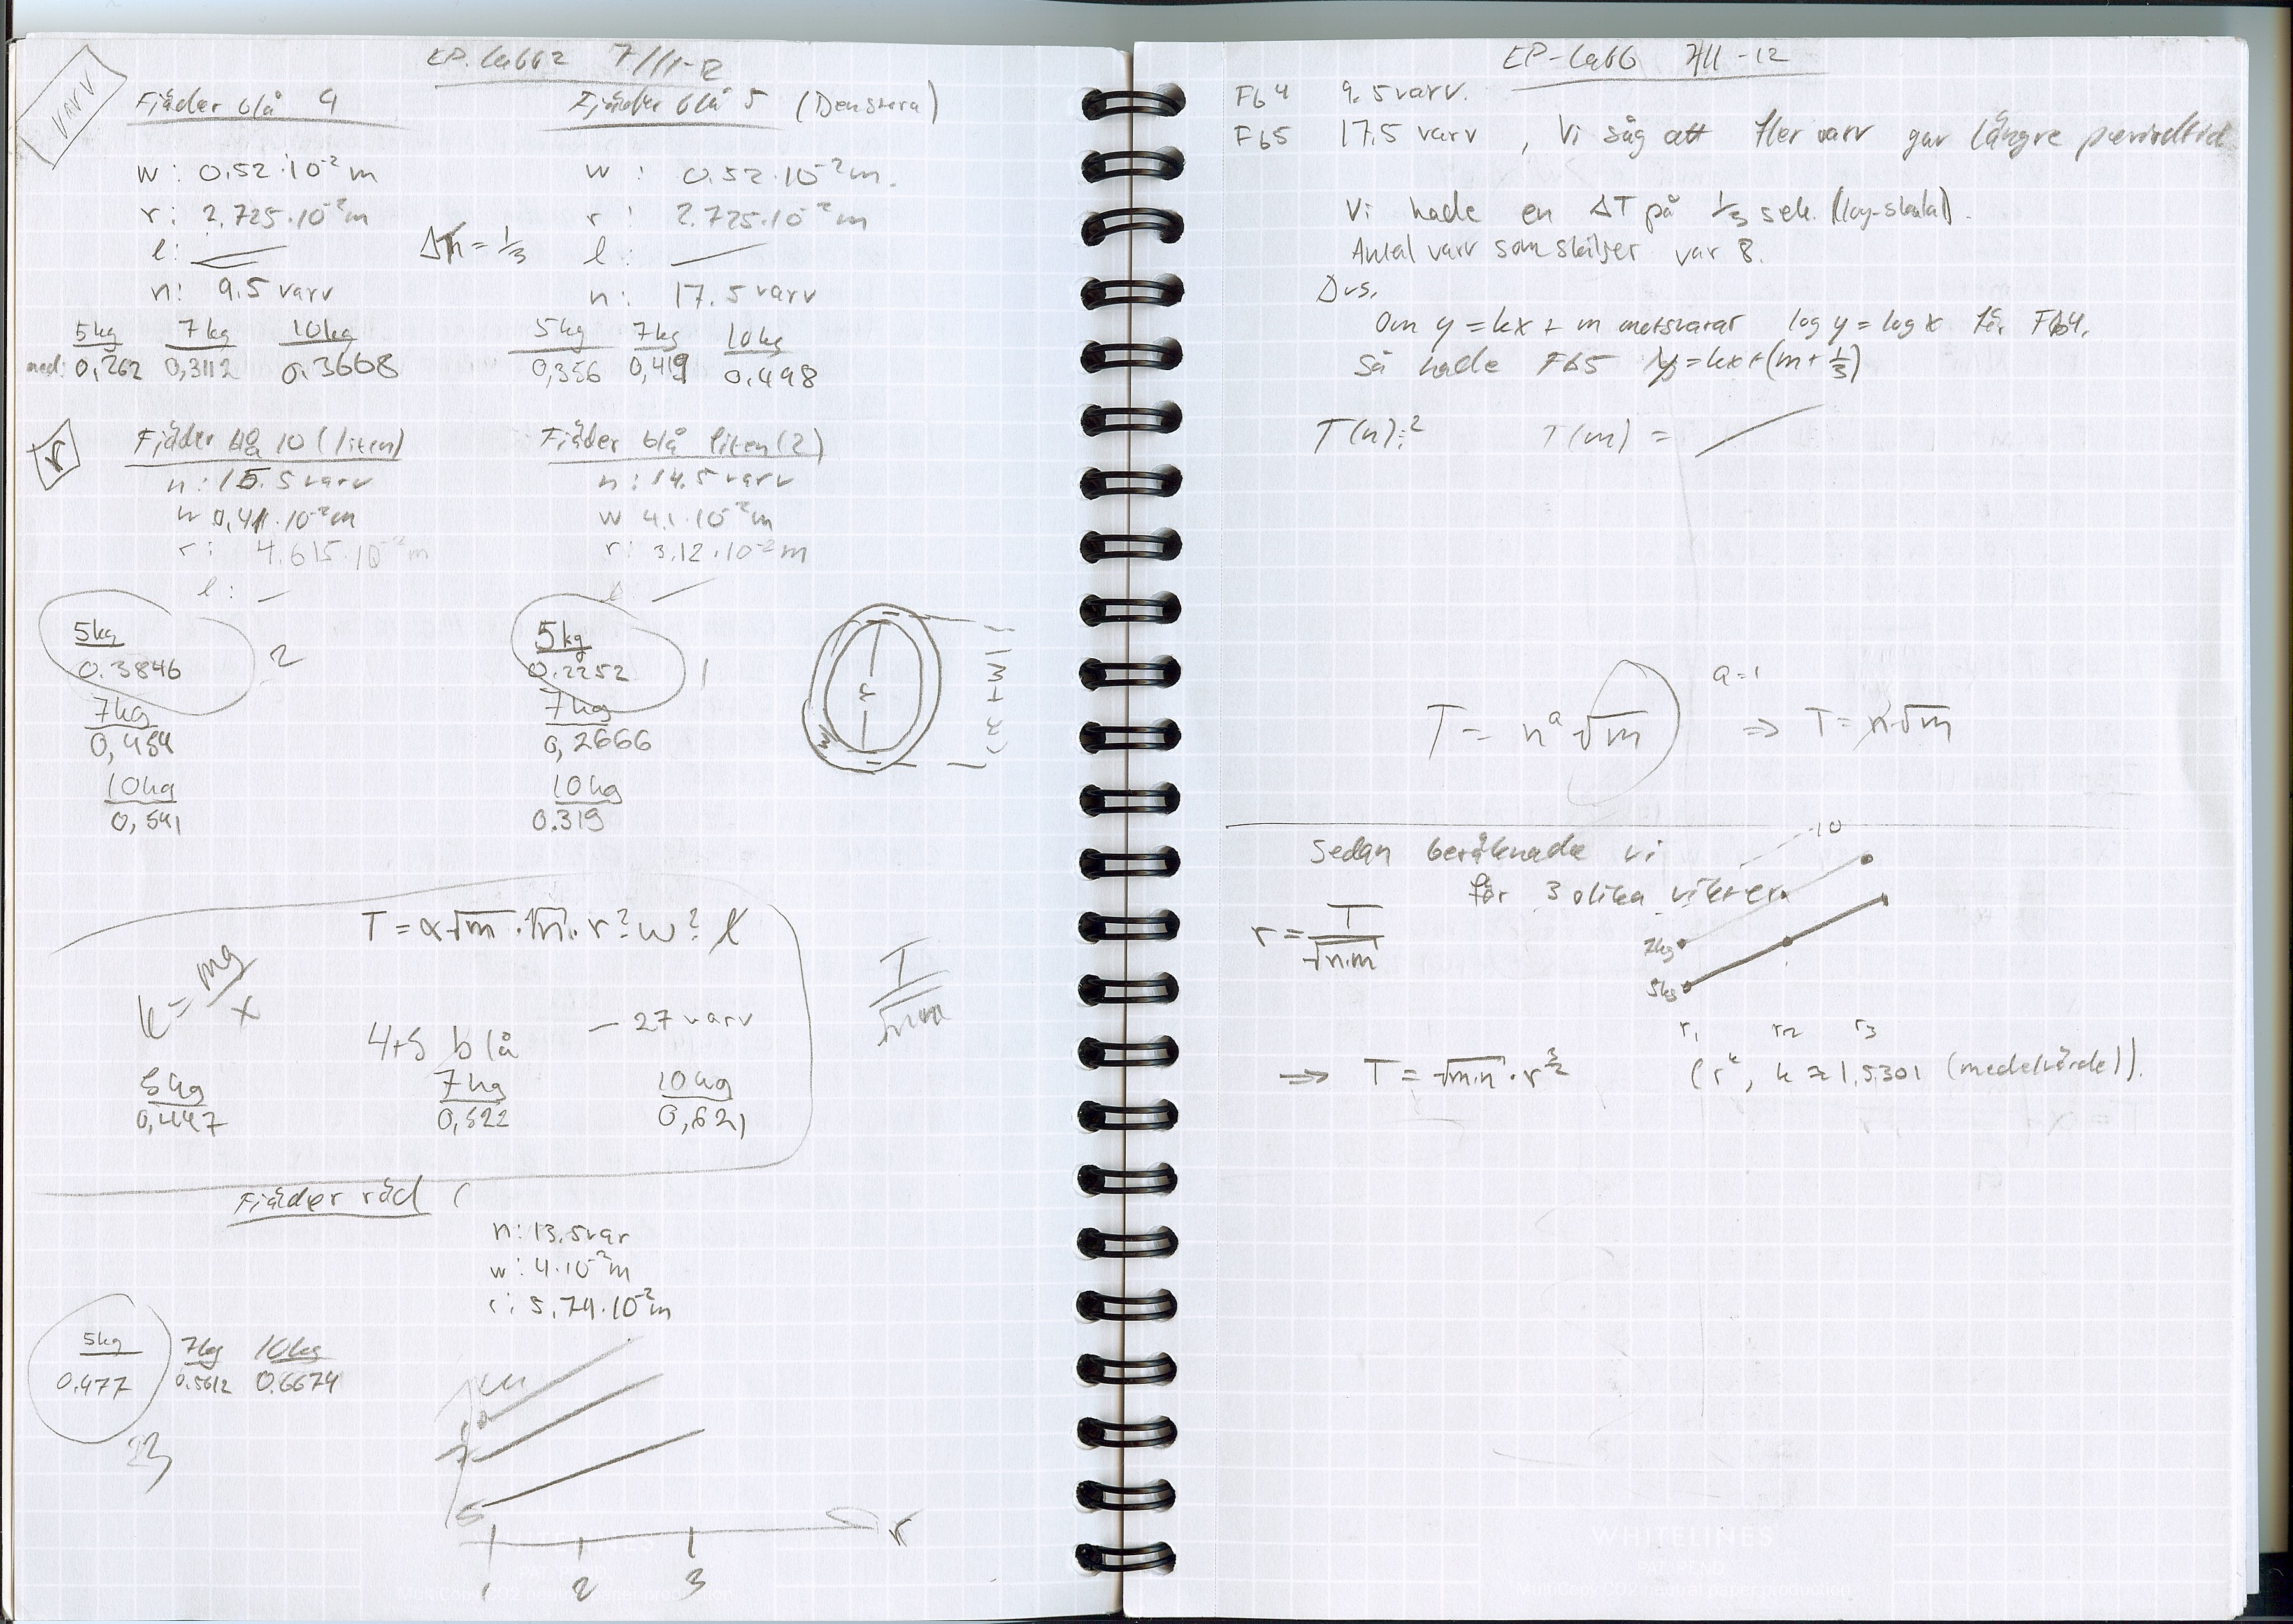 EP. Labb 2 7/11-12
varv
Fjäder blå 4
w: 0.52·10⁻² m
r: 2.725·10⁻² m
l:
n: 9.5 varv
5kg 7kg 10kg
med: 0,262 0,3112 0.3668
Fjäder blå 5 (Den stora)
w: 0.52·10⁻² m.
r: 2.725·10⁻² m
l:
n: 17.5 varv
5kg 7kg 10kg
0,356 0,419 0.498
= 1/3
r
Fjäder blå 10 (liten)
n: 15.5 varv
w 0,41·10⁻² m
r: 4.615·10⁻² m
l: –
5kg
0.3846
2
7kg
0,454
10kg
0,541
Fjäder blå liten (2)
n: 14.5 varv
w 4.1·10⁻² m
r: 3.12·10⁻² m
l:
5kg
0.2252
1
7kg
0,2666
10kg
0.319
r
T = α√m·√n·r^? w^? l
k = mg/x
4+5 blå – 27 varv
5kg 7kg 10kg
0,447 0,522 0,621
Fjäder röd (
n: 13.5 var
w: 4·10⁻² m
r: 5.79·10⁻² m
5kg 7kg 10kg
0.477 0.5612 0.6674
7
5
r
1 2 3
EP-Labb 7/11-12
Fb4 9.5 varv.
Fb5 17.5 varv, Vi såg att fler varv gav längre periodtid
Vi hade en ΔT på 1/3 sek. (log-skala).
Antal varv som skiljer var 8.
Dvs.
Om y = kx + m motsvarar log y = log x för Fb4,
Så hade Fb5 y = kx + (m + 1/3)
T(n) = ? T(m) =
T = nᵃ √m a=1 ⇒ T = n√m
Sedan beräknade vi
för 3 olika vikter
r = T/√n·m
10
7kg
5kg
r₁ r₂ r₃
⇒ T = √m·n · r^3/2 (rᵏ, k ≈ 1,5301 (medelvärde)).
WHITELINES